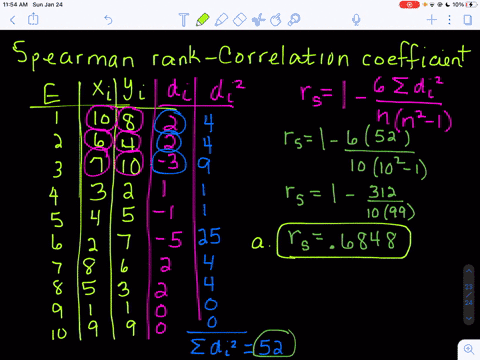 11:54 AM Sun Jan 24
10%
Spearman rank-Correlation coefficient
E xi yi di di²
1 10 8 2 4
2 6 4 2 4
3 7 10 -3 9
4 3 2 1 1
5 4 5 -1 1
6 2 7 -5 25
7 8 6 2 4
8 5 3 2 4
9 1 1 0 0
10 9 9 0 0
Σdi² = 52
rs = 1 - 6Σdi² / n(n²-1)
rs = 1 - 6(52) / 10(10²-1)
rs = 1 - 312 / 10(99)
a. rs = .6848